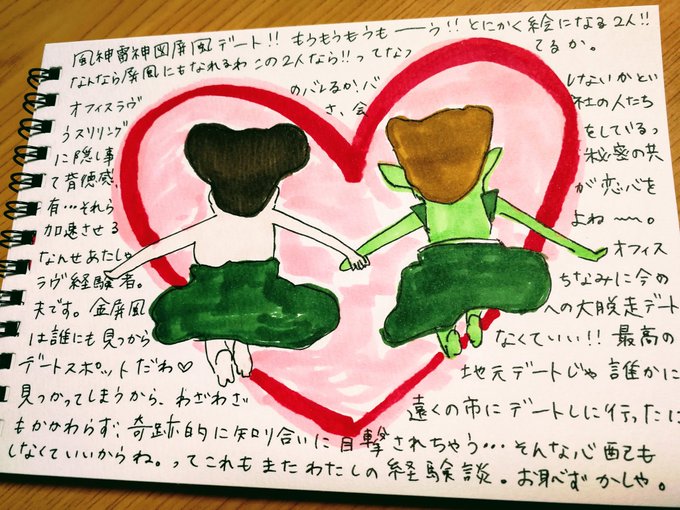 風神雷神図屏風デート!! もうもうもうもーーう!! とにかく絵になる2人!!
なんなら屏風にもなれるわこの2人なら!! ってなってるか。
オフィスラヴのバレるか、バレないかとい
うスリリングさ、会社の人たち
に隠し事をしているっ
て背徳感、秘密の共
有…それらが恋心を
加速させるよね〜〜。
なんせあたしゃオフィス
ラヴ経験者。ちなみに今の
夫です。金屏風への大脱走デート
は誰にも見つからなくていい!! 最高の
デートスポットだわ♡ 地元デートじゃ誰かに
見つかってしまうから、わざわざ遠くの市にデートしに行ったに
もかかわらず、奇跡的に知り合いに目撃されちゃう…そんな心配も
しなくていいからね。ってこれもまたわたしの経験談。お恥ずかしや。